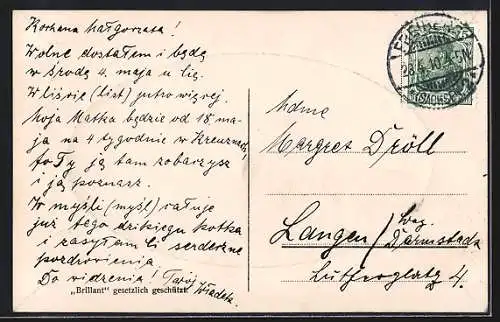 Kochana Małgorzata!
Wolne dostałem i będę
w środę 4. maja u Cię.
W liście (list) jutro więcej.
Moja Matka będzie od 18 ma-
ja na 4 tygodnie w Kreuznach,
to Ty ją tam zobaczysz
i ją poznasz.
W myśli (myśl) całuję
już tego dzikiego kotka
i zasyłam Ci serdeczne
pozdrowienia
Do widzenia! Twój
Władek.
„Brillant“ gesetzlich geschützt.
28.4.10.
Mdme
Margret Dröll
Langen / Bez.
Darmstadt
Lutherplatz 4.